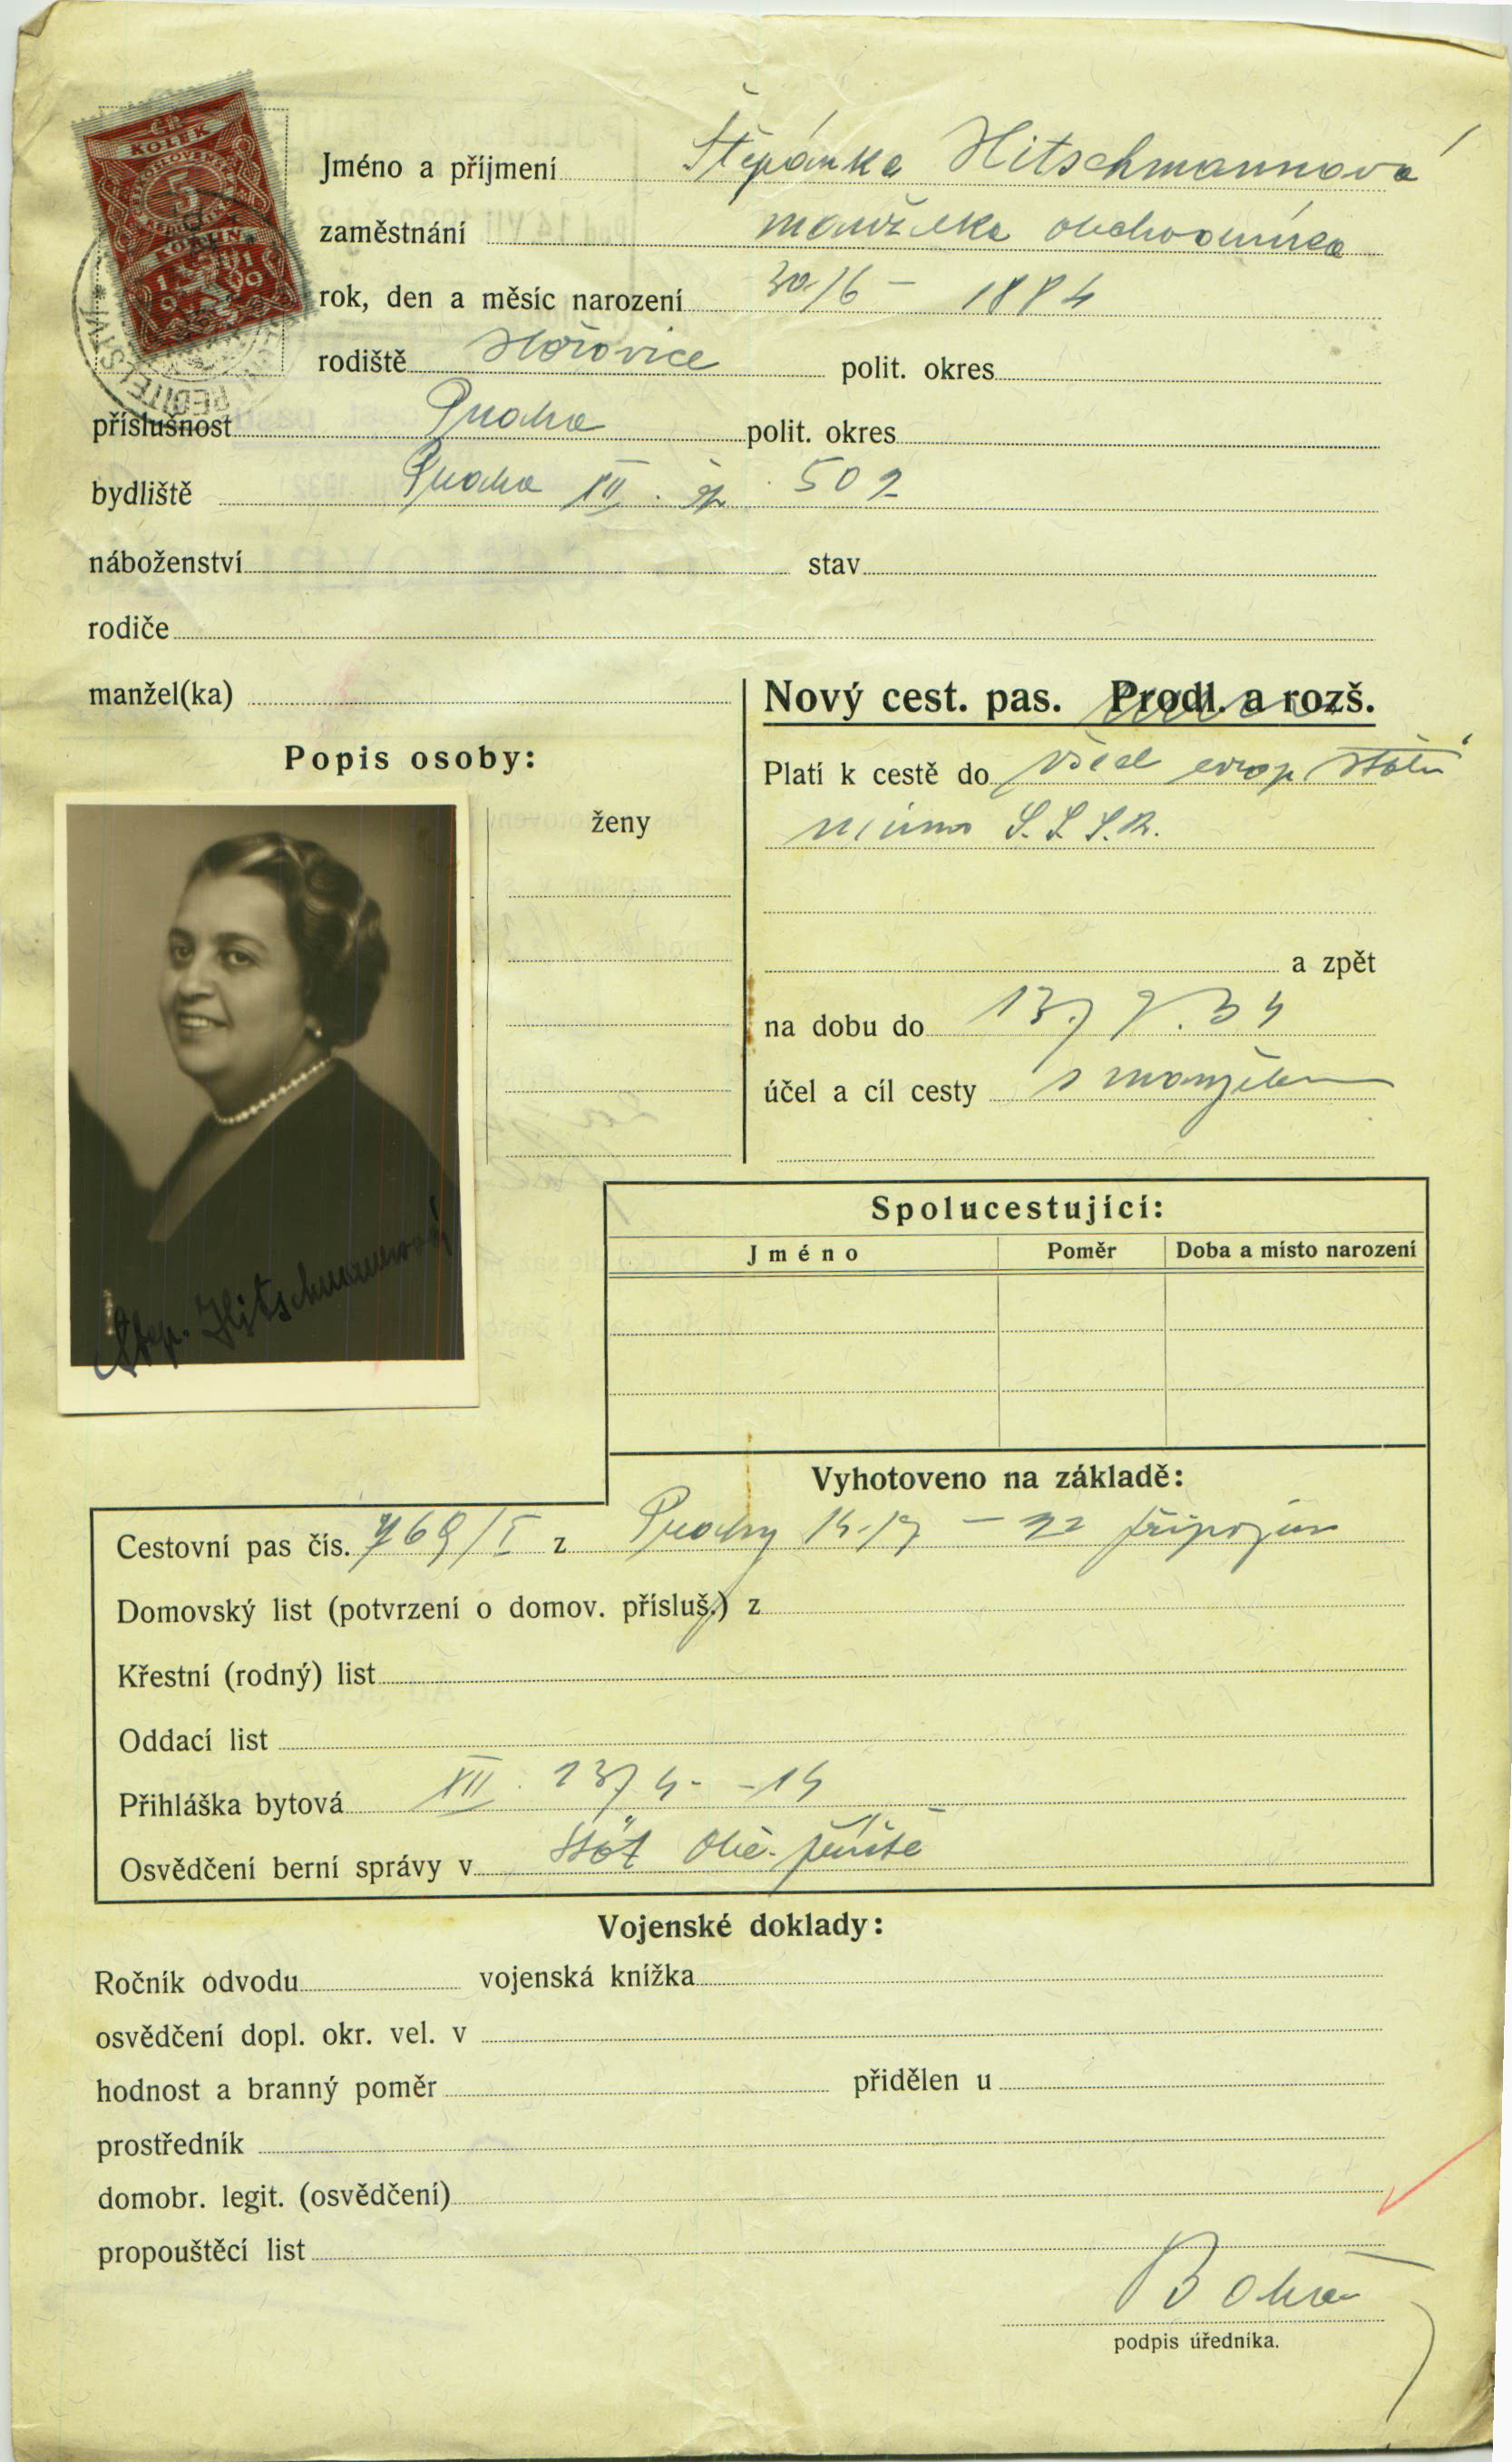 KOLEK
5
KORUN
Jméno a příjmení Štěpánka Hitschmannová
zaměstnání manželka obchodníka
rok, den a měsíc narození 30/6 – 1884
rodiště Hořovice polit. okres
příslušnost Praha polit. okres
bydliště Praha XII. čp. 502
náboženství stav
rodiče
manžel(ka)
Nový cest. pas. Prodl. a rozš.
Popis osoby:
Platí k cestě do všech evrop. států
mimo S.S.S.R.
ženy
a zpět
na dobu do 13/7.34
účel a cíl cesty s manželem
Step. Hitschmannová
Spolucestující:
Jméno Poměr Doba a místo narození
Vyhotoveno na základě:
Cestovní pas čís. 769/I z Prahy
Domovský list (potvrzení o domov. přísluš.) z
Křestní (rodný) list
Oddací list
Přihláška bytová XII. 23/4 - -14
Osvědčení berní správy v
Vojenské doklady:
Ročník odvodu vojenská knížka
osvědčení dopl. okr. vel. v
hodnost a branný poměr přidělen u
prostředník
domobr. legit. (osvědčení)
propouštěcí list
podpis úředníka.